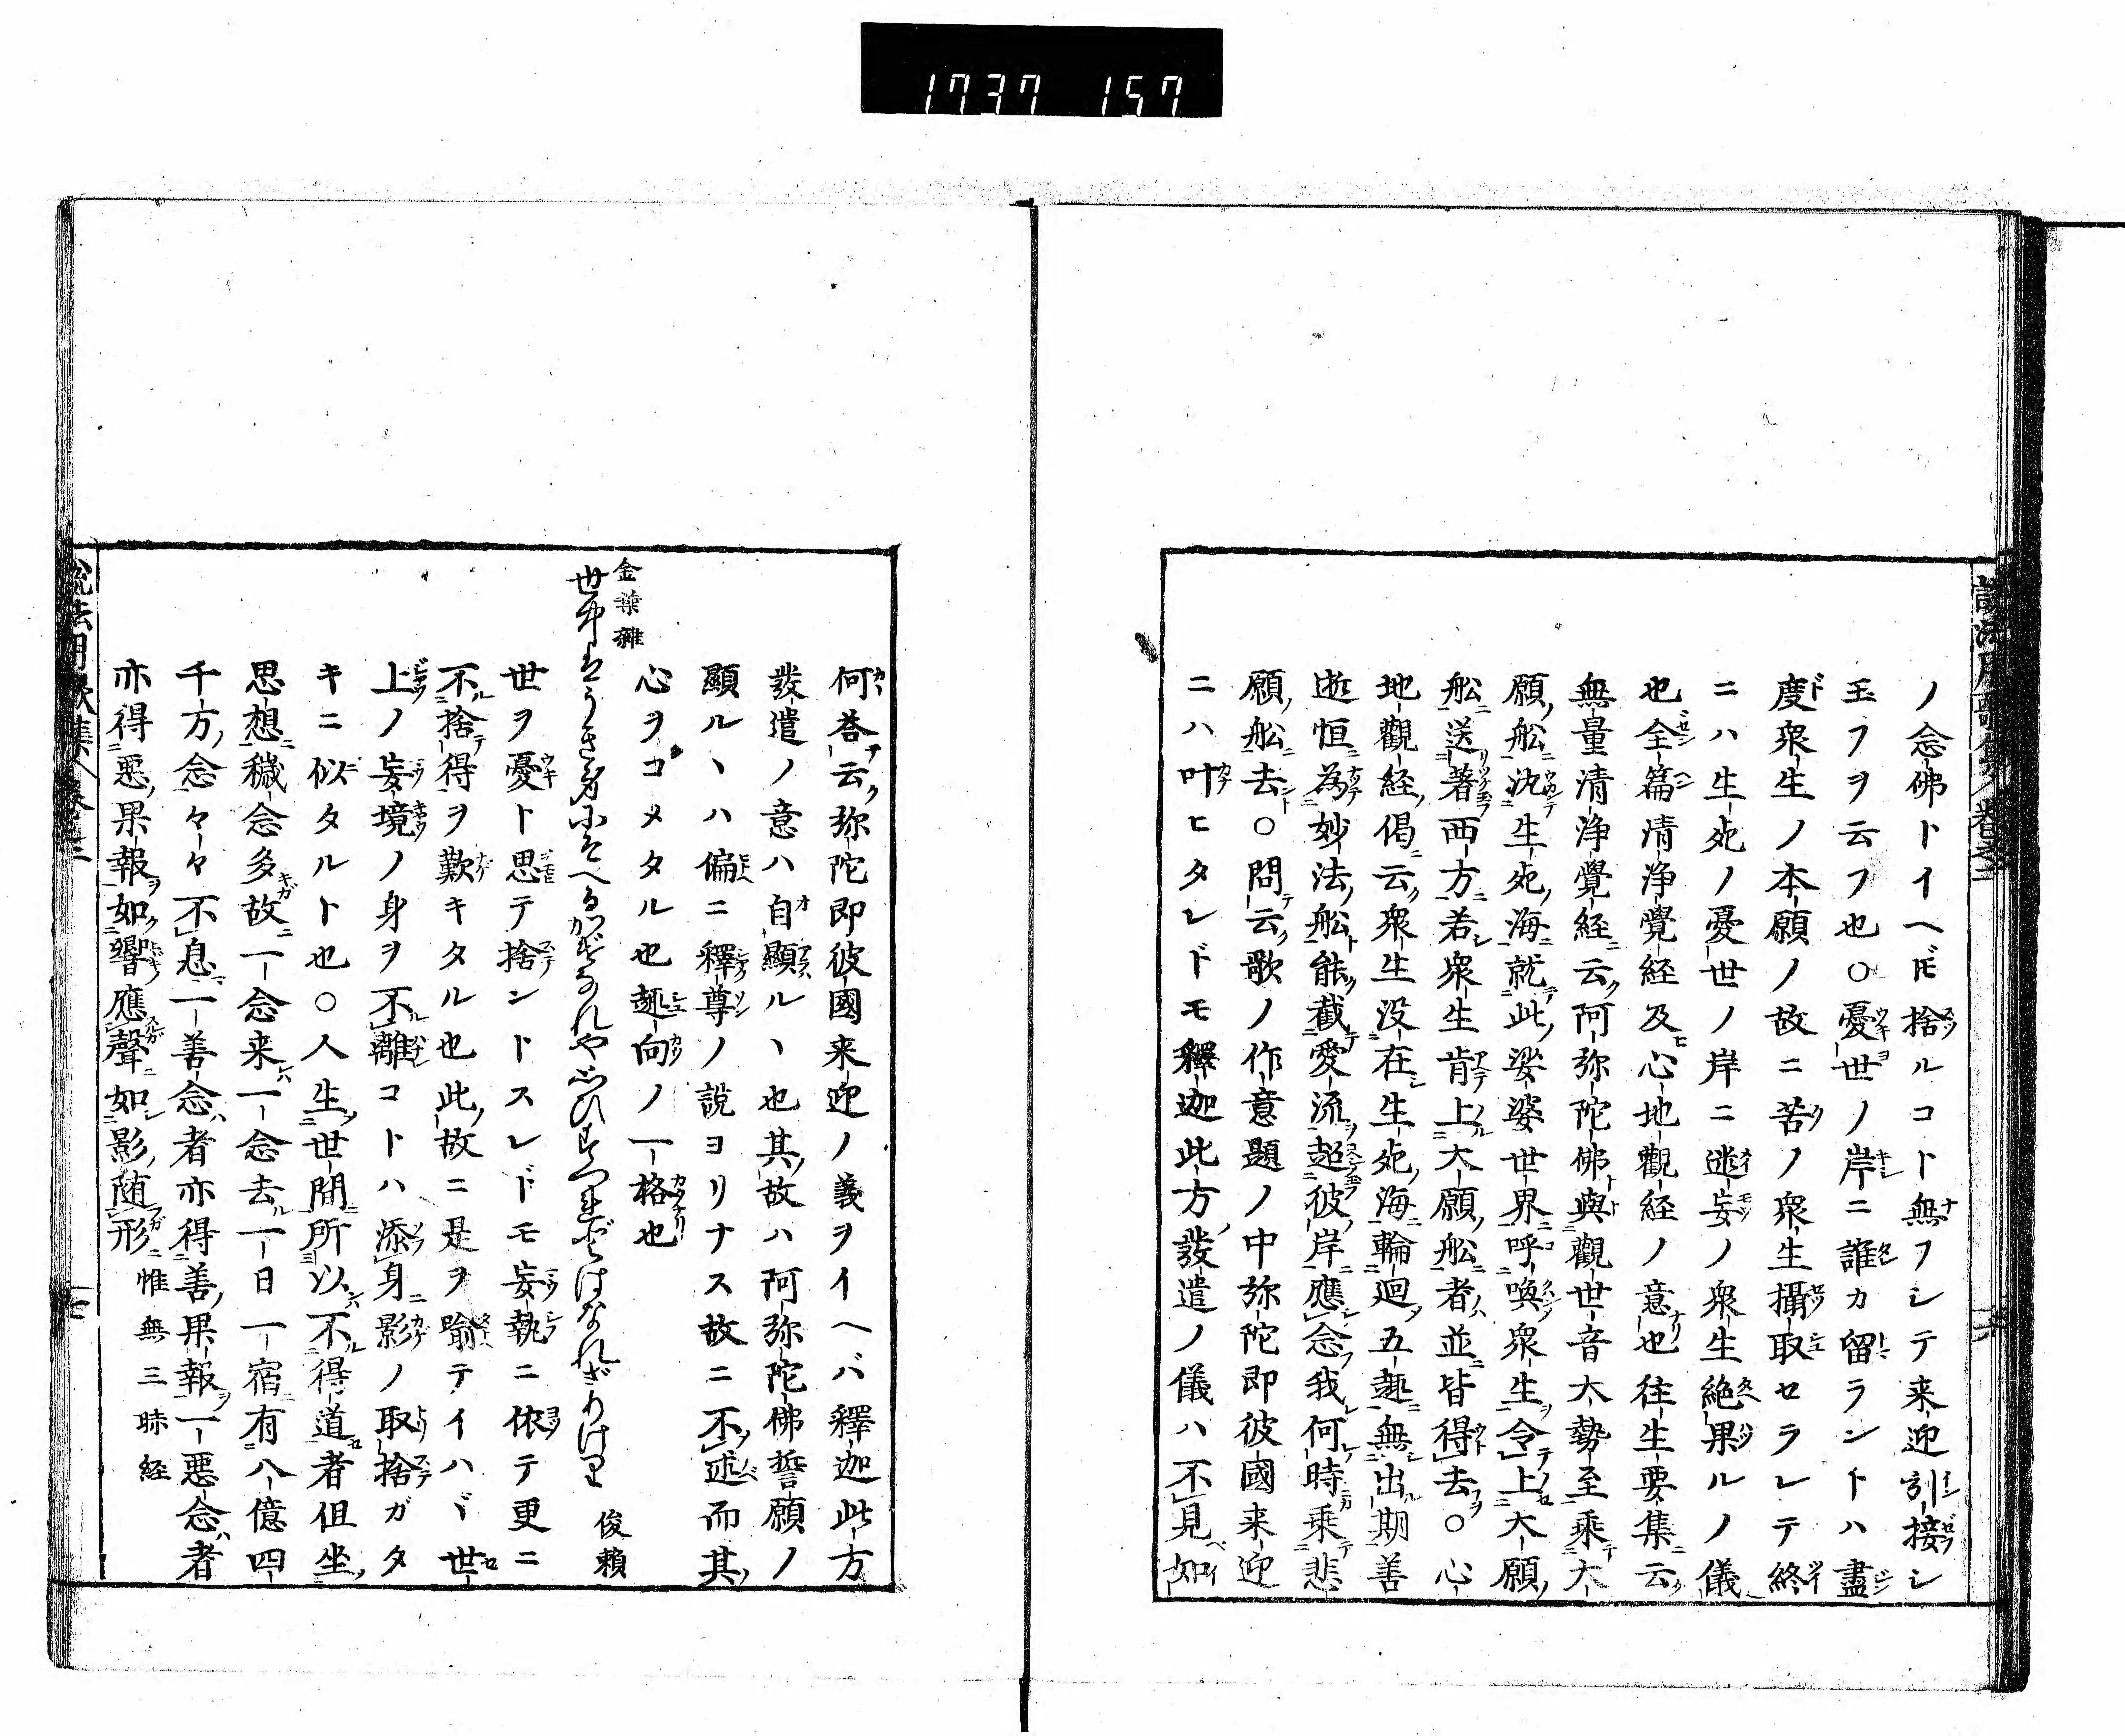 1737 157
ノ念佛トイヘ𪜈捨ルコト無フシテ来迎引接シ
玉フヲ云フ也○憂世ノ岸ニ誰カ留ラントハ盡
度衆生ノ本願ノ故ニ苦ノ衆生攝取セラレテ終
ニハ生死ノ憂世ノ岸ニ迷妄ノ衆生絶果ルノ儀
也全篇清浄覺経及心地觀経ノ意也往生要集云
無量清浄覺経云阿弥陀佛與觀世音大勢至乘大
願舩汎生死海就此娑婆世界呼喚衆生令上大願
舩送著西方若衆生肯上大願舩者並皆得去○心
地觀経偈云衆生没在生死海輪迴五趣無出期善
逝恒為妙法舩能截愛流超彼岸應念我何時乘悲
願舩去○問云歌ノ作意題ノ中弥陀即彼國来迎
ニハ叶ヒタレドモ釋迦此方發遣ノ儀ハ不見如
何荅云弥陀即彼國来迎ノ義ヲイヘバ釋迦此方
發遣ノ意ハ自顯ルヽ也其故ハ阿弥陀佛誓願ノ
顯ルヽハ偏ニ釋尊ノ説ヨリナス故ニ不述而其
心ヲコメタル也趣向ノ一格也
金葉雜
世中はうき身にそへるかげなれや思ひすつれどはなれざりけり 俊頼
世ヲ憂ト思テ捨ントスレドモ妄執ニ依テ更ニ
不捨得ヲ歎キタル也此故ニ是ヲ喩テイハヾ世
上ノ妄境ノ身ヲ不離コトハ添身影ノ取捨ガタ
キニ似タルト也○人生世間所以不得道者但坐
思想穢念多故一念来一念去一日一宿有八億四
千万念々々不息一善念者亦得善果報一惡念者
亦得惡果報如響應聲如影随形 惟無三昧経